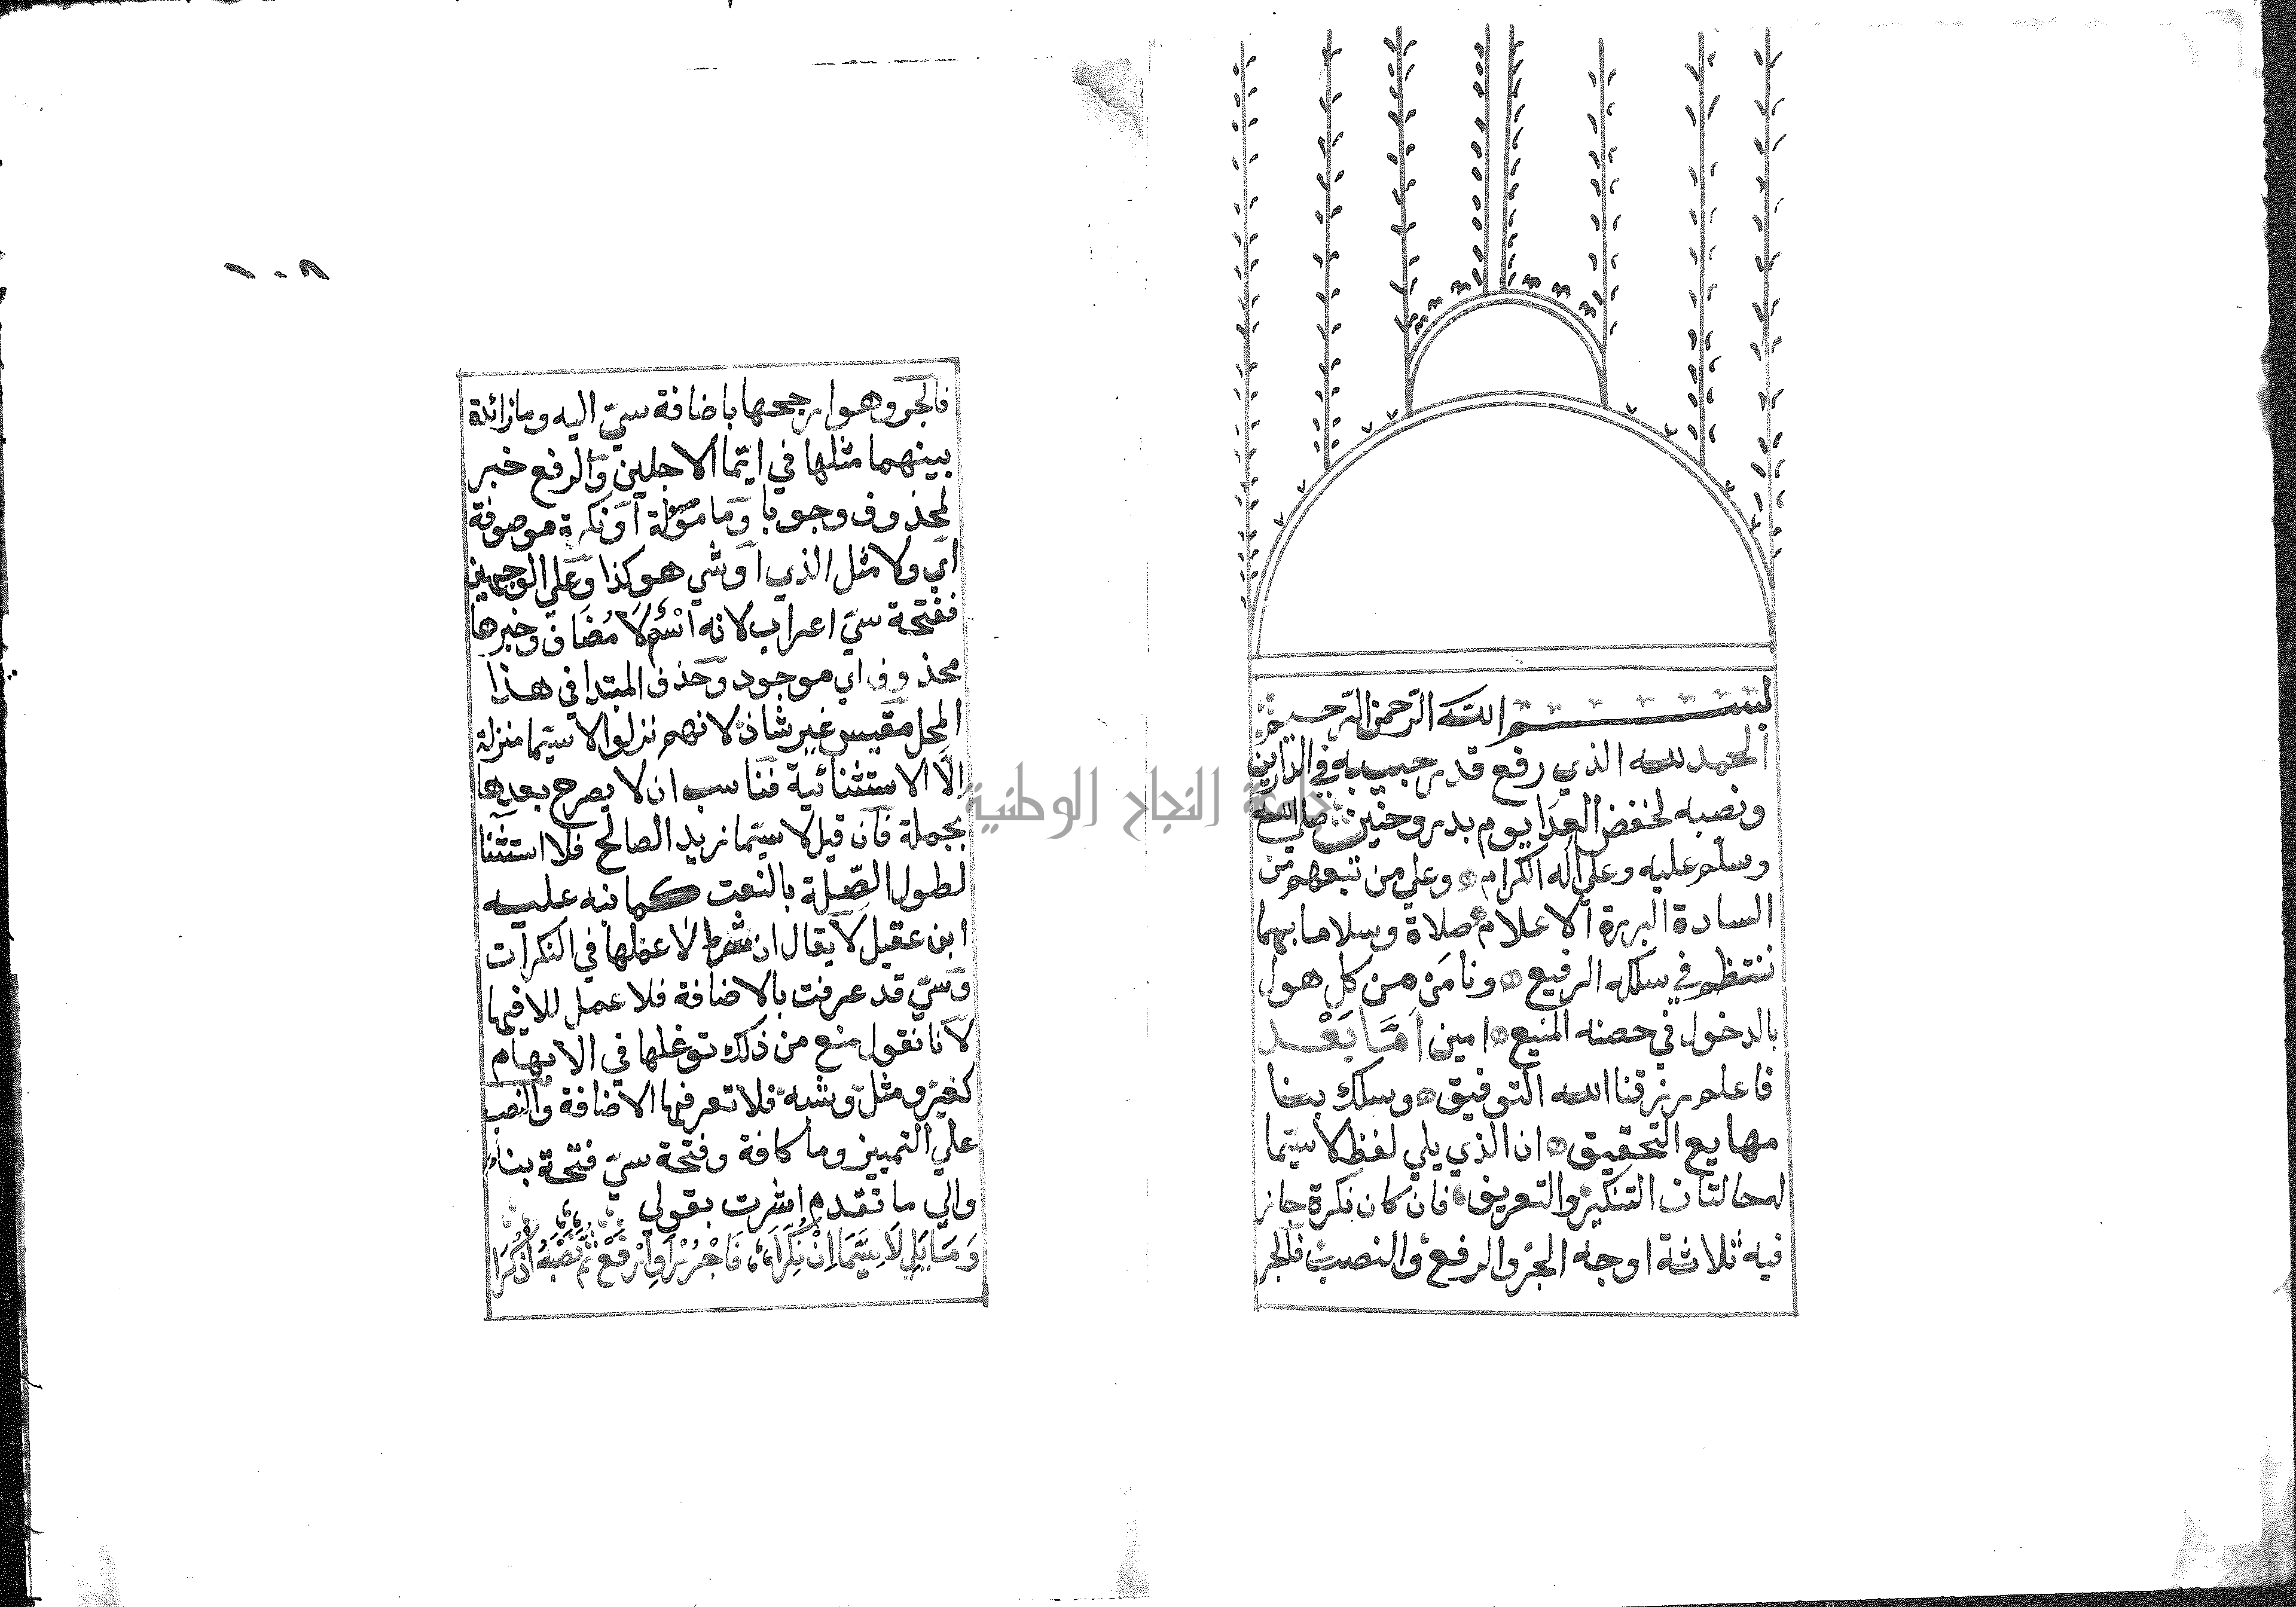 بسم الله الرحمن الرحيم
الحمد لله الذي رفع قدر حبيبه في الدارين
ونصبه لخفض العدا يوم بدر وحنين صلى الله
وسلم عليه وعلي اله الكرام وعلي من تبعهم من
السادة البررة الاعلام صلاة وسلاما بهما
ننتظم في سلكه الرفيع ونامن من كل هول
بالدخول في حصنه المنيع امين اَمَّا بَعْد
فاعلم رزقنا الله التوفيق وسلك بنا
مهايع التحقيق ان الذي يلي لفظ لاسيّما
له حالتان التنكير والتعريف فان كان نكرة جاز
فيه ثلاثة اوجه الجر والرفع والنصب فالجر
جامعة النجاح الوطنية
١٠٨
فالجر وهو ارجحها باضافة سيّ اليه وما زائدة
بينهما مثلها في ايّما الاجلين والرفع خبر
لمحذوف وجوبا وما موصولة او نكرة موصوفة
اي ولا مثل الذي او شي هو كذا وعلي الوجهين
ففتحة سيّ اعراب لانه اسْمُ لَا مُضَاف وخبرها
محذوف اي موجود وحذف المبتدا في هذا
المحل مقيس غير شاذ لانهم نزلوا لاسيّما منزلة
الّا الاستثنائية فناسب ان لا يصرح بعدها
بجملة فان قيل لاسيّما زيد الصالح فلا استثنا
لطول الصّلة بالنعت كما نبه عليه
ابن عقيل لا يقال ان شرط لا عملها في النكرات
وسيّ قد عرفت بالاضافة فلا عمل للا فيها
لانا نقول منع من ذلك توغلها في الابهام
كغير ومثل وشبه فلا تعرفها الاضافة والنصب
علي التمييز وما كافة وفتحة سيّ فتحة بناء
والي ما تقدم اشرت بقولي
وَمَا يَلِي لَاسِيَّمَا اِنْ نُكِّرَا، فَاجْرُرْ اَوِ ارْفَعْ ثُمَّ نَصْبَهُ اُذْكُرَا